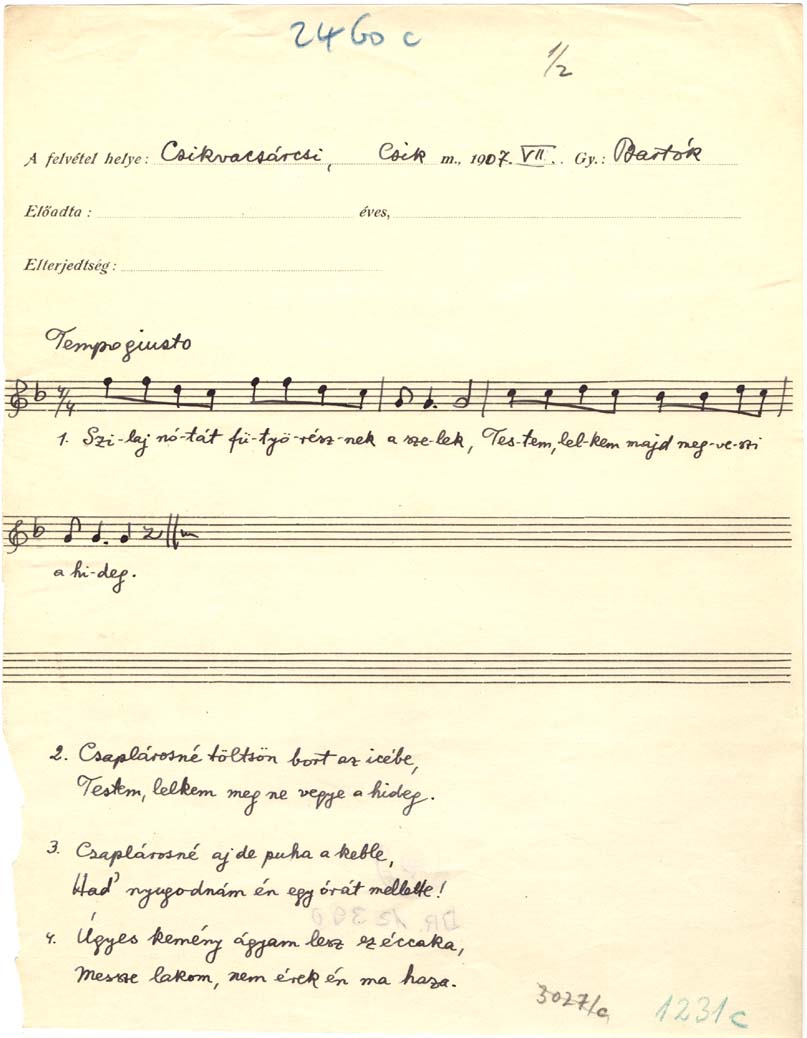 2460 c
1/2
A felvétel helye: Csikvacsárcsi, Csik m., 1907. VII. Gy.: Bartók
Előadta: éves,
Elterjedtség:
Tempo giusto
4/4
1. Szi-laj nó-tát fü-työ-rész-nek a sze-lek, Tes-tem, lel-kem majd meg-ve-szi
a hi-deg.
2. Csaplárosné töltsön bort az icébe,
Testem, lelkem meg ne vegye a hideg.
3. Csaplárosné aj de puha a keble,
Had' nyugodnám én egy órát mellette!
4. Úgyes kemény ágyam lesz ez éccaka,
Messze lakom, nem érek én ma haza.
3027/c 1231 c